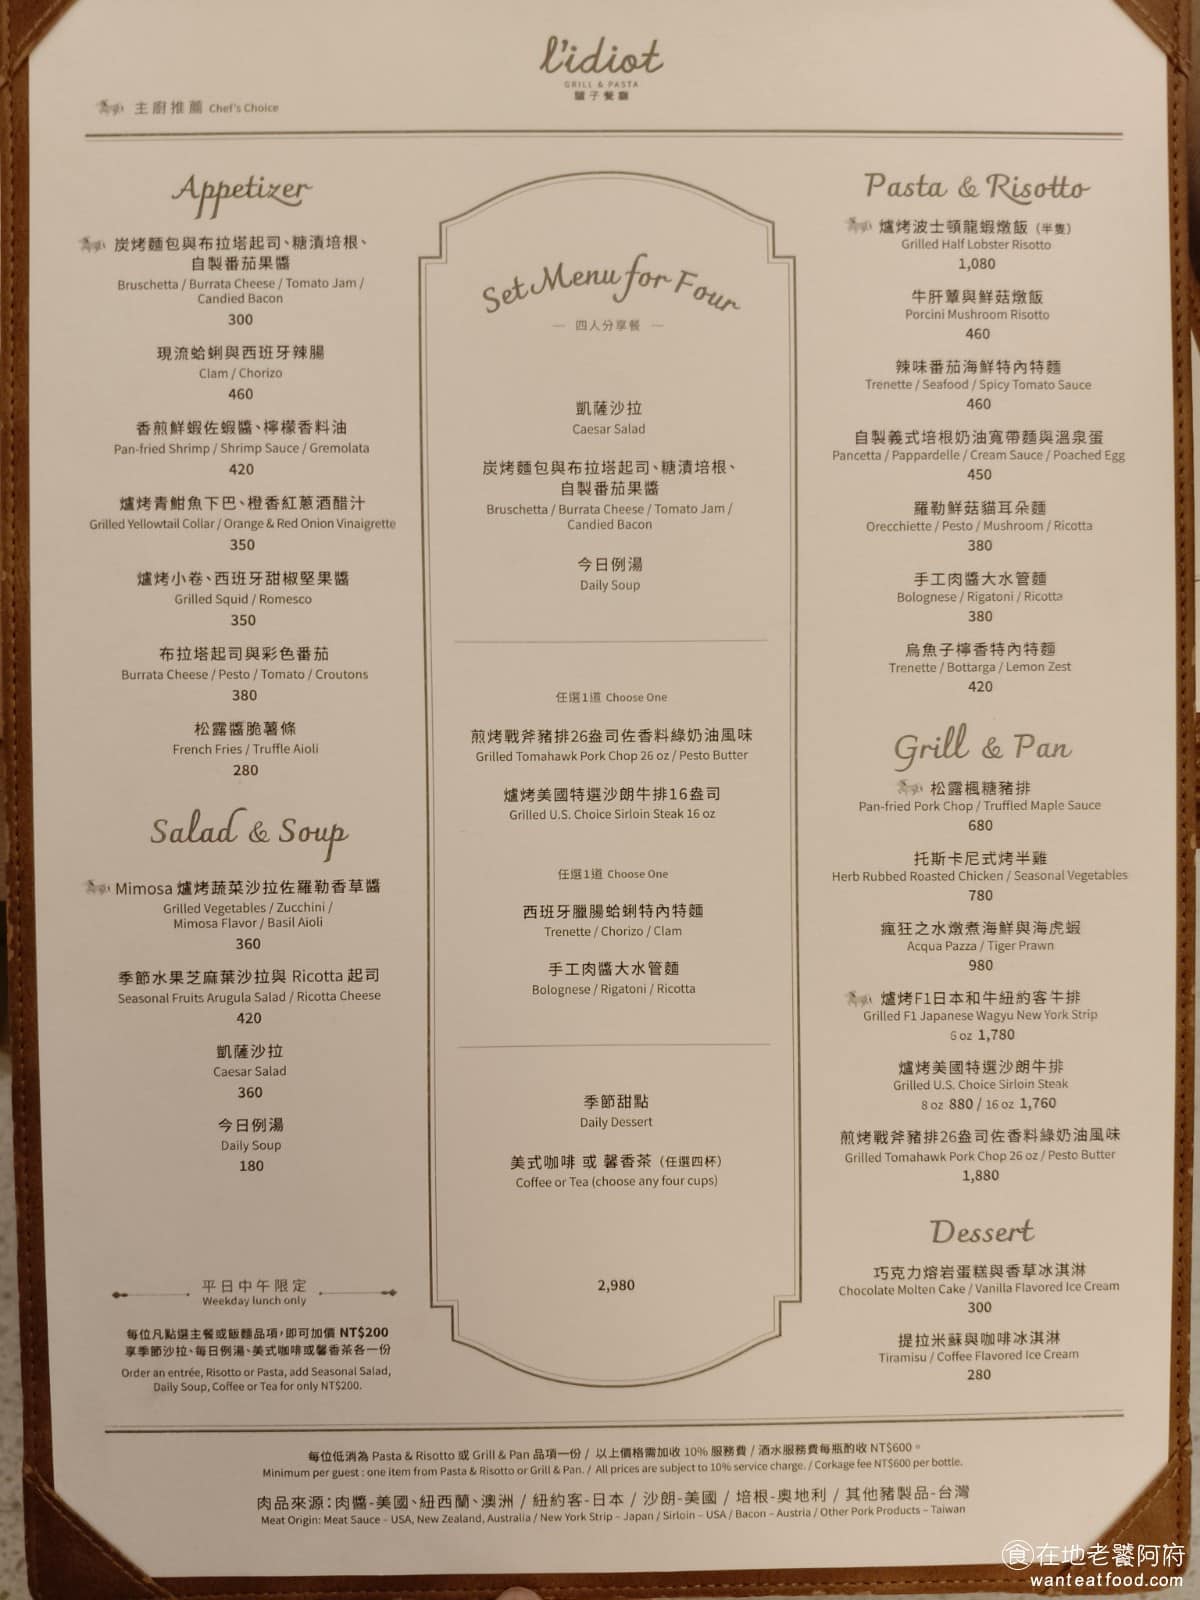 l'idiot
GRILL & PASTA
驢子餐廳
主廚推薦 Chef's Choice
Appetizer
炭烤麵包與布拉塔起司、糖漬培根、
自製番茄果醬
Bruschetta / Burrata Cheese / Tomato Jam /
Candied Bacon
300
現流蛤蜊與西班牙辣腸
Clam / Chorizo
460
香煎鮮蝦佐蝦醬、檸檬香料油
Pan-fried Shrimp / Shrimp Sauce / Gremolata
420
爐烤青魽魚下巴、橙香紅蔥酒醋汁
Grilled Yellowtail Collar / Orange & Red Onion Vinaigrette
350
爐烤小卷、西班牙甜椒堅果醬
Grilled Squid / Romesco
350
布拉塔起司與彩色番茄
Burrata Cheese / Pesto / Tomato / Croutons
380
松露醬脆薯條
French Fries / Truffle Aioli
280
Salad & Soup
Mimosa 爐烤蔬菜沙拉佐羅勒香草醬
Grilled Vegetables / Zucchini /
Mimosa Flavor / Basil Aioli
360
季節水果芝麻葉沙拉與 Ricotta 起司
Seasonal Fruits Arugula Salad / Ricotta Cheese
420
凱薩沙拉
Caesar Salad
360
今日例湯
Daily Soup
180
平日中午限定
Weekday lunch only
每位凡點選主餐或飯麵品項，即可加價 NT$200
享季節沙拉、每日例湯、美式咖啡或馨香茶各一份
Order an entrée, Risotto or Pasta, add Seasonal Salad,
Daily Soup, Coffee or Tea for only NT$200.
Set Menu for Four
— 四人分享餐 —
凱薩沙拉
Caesar Salad
炭烤麵包與布拉塔起司、糖漬培根、
自製番茄果醬
Bruschetta / Burrata Cheese / Tomato Jam /
Candied Bacon
今日例湯
Daily Soup
任選1道 Choose One
煎烤戰斧豬排26盎司佐香料綠奶油風味
Grilled Tomahawk Pork Chop 26 oz / Pesto Butter
爐烤美國特選沙朗牛排16盎司
Grilled U.S. Choice Sirloin Steak 16 oz
任選1道 Choose One
西班牙臘腸蛤蜊特內特麵
Trenette / Chorizo / Clam
手工肉醬大水管麵
Bolognese / Rigatoni / Ricotta
季節甜點
Daily Dessert
美式咖啡 或 馨香茶（任選四杯）
Coffee or Tea (choose any four cups)
2,980
Pasta & Risotto
爐烤波士頓龍蝦燉飯（半隻）
Grilled Half Lobster Risotto
1,080
牛肝蕈與鮮菇燉飯
Porcini Mushroom Risotto
460
辣味番茄海鮮特內特麵
Trenette / Seafood / Spicy Tomato Sauce
460
自製義式培根奶油寬帶麵與溫泉蛋
Pancetta / Pappardelle / Cream Sauce / Poached Egg
450
羅勒鮮菇貓耳朵麵
Orecchiette / Pesto / Mushroom / Ricotta
380
手工肉醬大水管麵
Bolognese / Rigatoni / Ricotta
380
烏魚子檸香特內特麵
Trenette / Bottarga / Lemon Zest
420
Grill & Pan
松露楓糖豬排
Pan-fried Pork Chop / Truffled Maple Sauce
680
托斯卡尼式烤半雞
Herb Rubbed Roasted Chicken / Seasonal Vegetables
780
瘋狂之水燉煮海鮮與海虎蝦
Acqua Pazza / Tiger Prawn
980
爐烤F1日本和牛紐約客牛排
Grilled F1 Japanese Wagyu New York Strip
6 oz 1,780
爐烤美國特選沙朗牛排
Grilled U.S. Choice Sirloin Steak
8 oz 880 / 16 oz 1,760
煎烤戰斧豬排26盎司佐香料綠奶油風味
Grilled Tomahawk Pork Chop 26 oz / Pesto Butter
1,880
Dessert
巧克力熔岩蛋糕與香草冰淇淋
Chocolate Molten Cake / Vanilla Flavored Ice Cream
300
提拉米蘇與咖啡冰淇淋
Tiramisu / Coffee Flavored Ice Cream
280
每位低消為 Pasta & Risotto 或 Grill & Pan 品項一份 / 以上價格需加收 10% 服務費 / 酒水服務費每瓶酌收 NT$600。
Minimum per guest : one item from Pasta & Risotto or Grill & Pan. / All prices are subject to 10% service charge. / Corkage fee NT$600 per bottle.
肉品來源：肉醬-美國、紐西蘭、澳洲 / 紐約客-日本 / 沙朗-美國 / 培根-奧地利 / 其他豬製品-台灣
Meat Origin: Meat Sauce – USA, New Zealand, Australia / New York Strip – Japan / Sirloin – USA / Bacon – Austria / Other Pork Products – Taiwan
食在地老饕阿府
wanteatfood.com